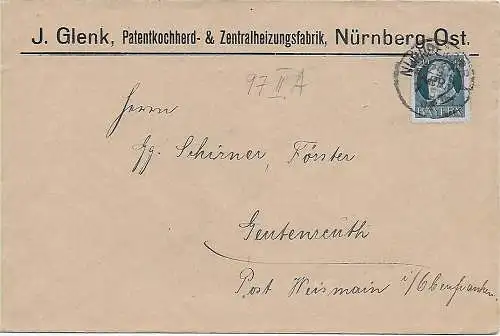 J. Glenk, Patentkochherd- & Zentralheizungsfabrik, Nürnberg-Ost.
97 II A
BAYERN
Herrn
Gg. Schirner, Förster
Geutenreuth
Post Weismain i/Obenfranken